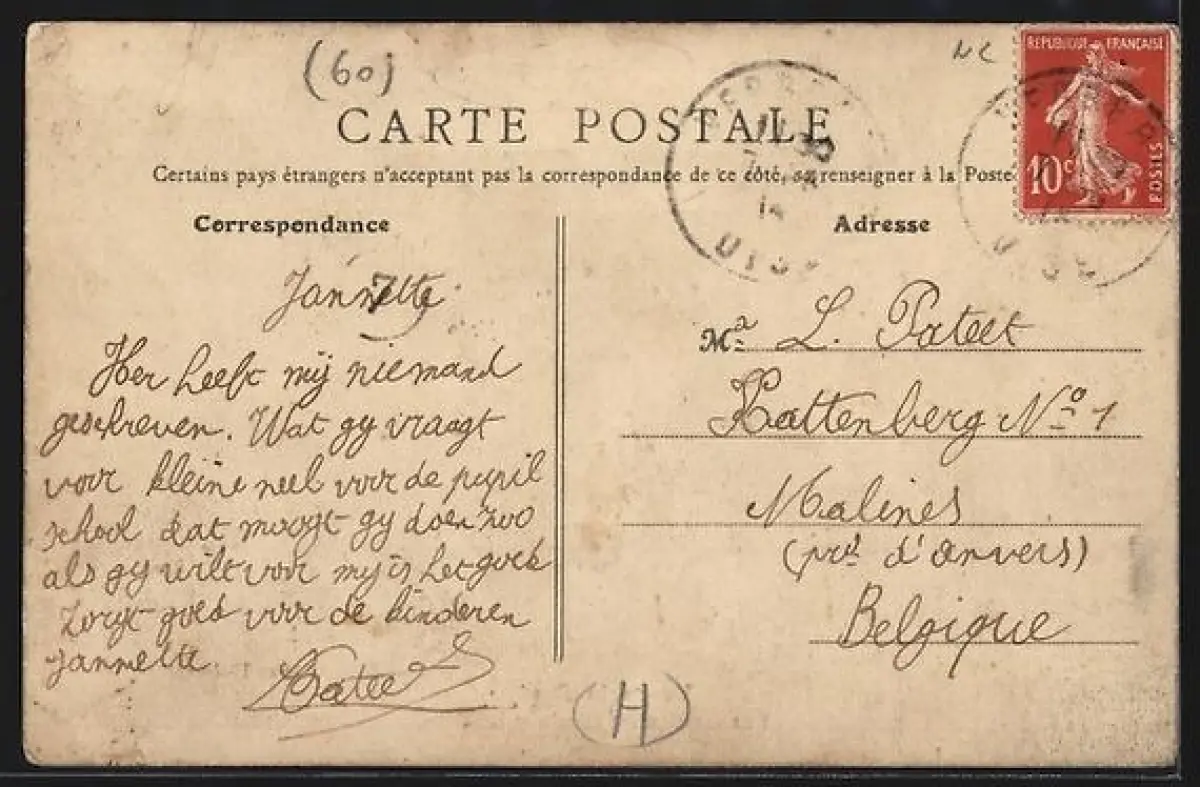 (60)
NC
CARTE POSTALE
Certains pays étrangers n'acceptant pas la correspondance de ce côté, se renseigner à la Poste
Correspondance
Jannette
Her heeft mij niemand
geschreven. Wat gy vraagt
voor kleine neel voor de pupil
school dat moogt gy doen zoo
als gy wilt voor mij is het goed
zorgt goed voor de kinderen
Jannette
Adresse
Ma L. Pateet
Kattenberg No 1
Malines
(prd d'Anvers)
Belgique
REPUBLIQUE FRANÇAISE
10c
POSTES
14
OISE
(H)